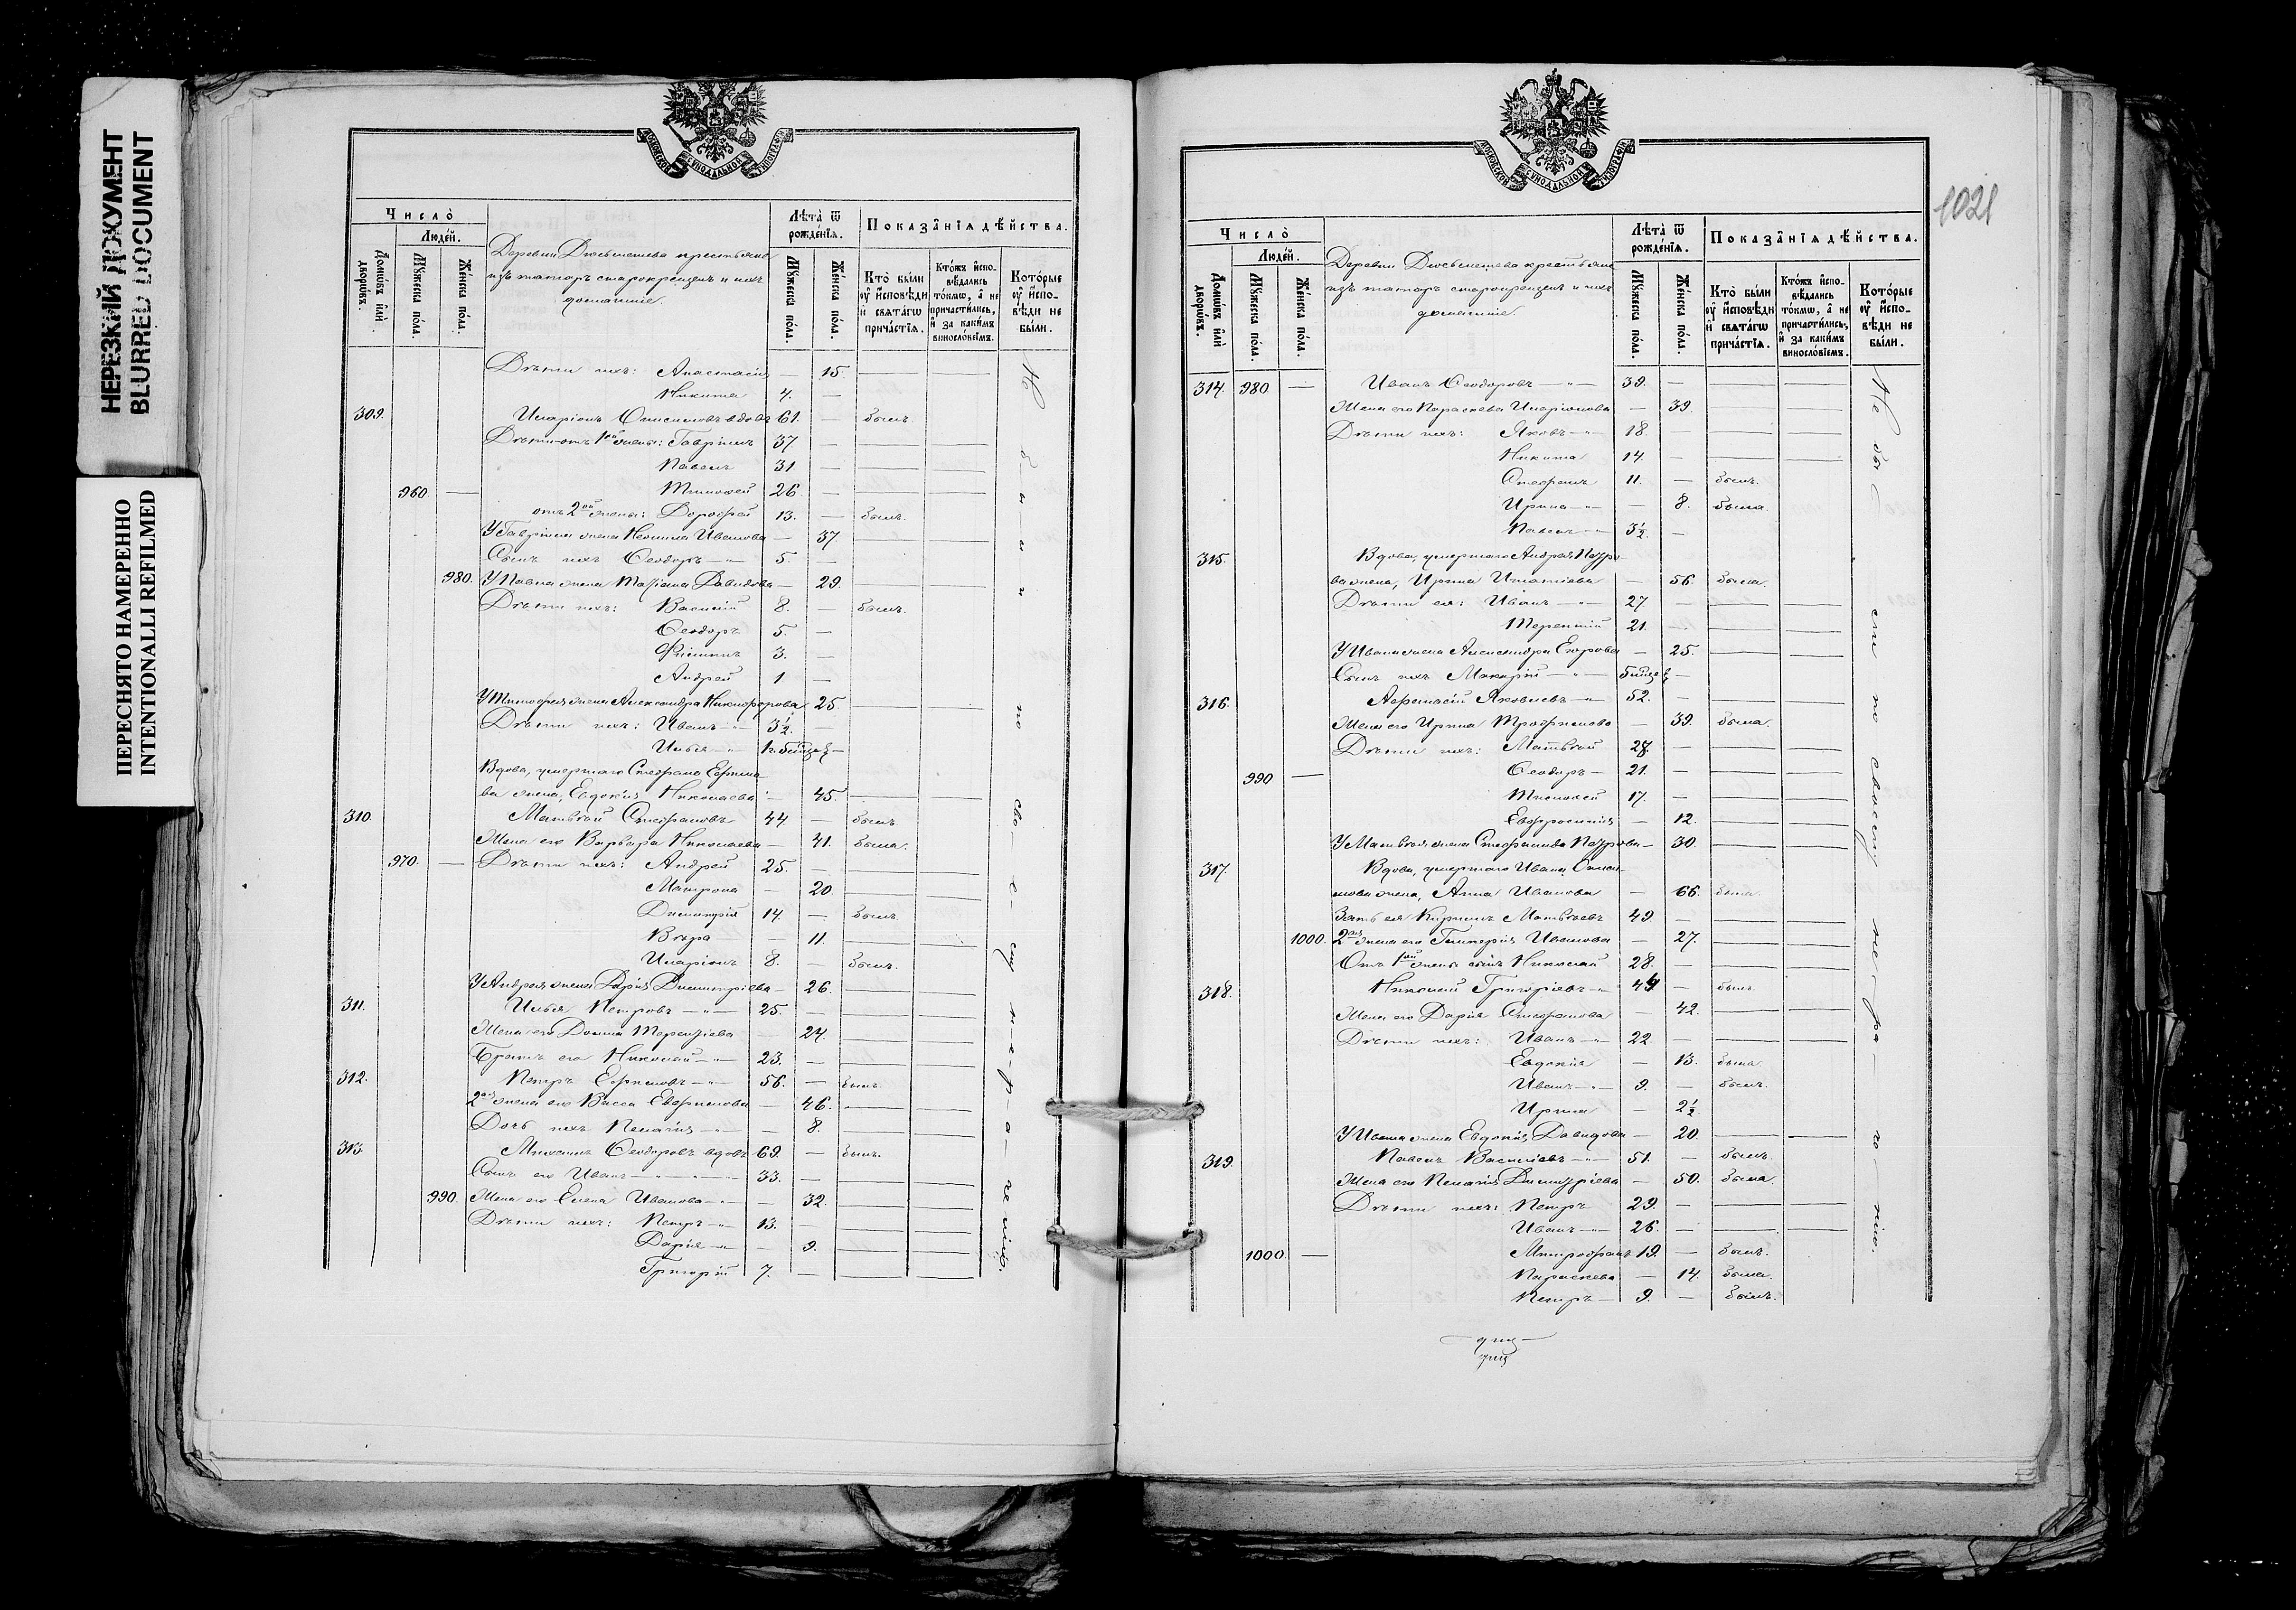 НЕРЕЗКИЙ ДОКУМЕНТ
BLURRED DOCUMENT
ПЕРЕСНЯТО НАМЕРЕННО
INTENTIONALLI REFILMED
МОСКОВСКОЙ СѴНОДАЛЬНОЙ ТИПОГРАФІИ
Число̀
Людей.
Домѡвъ илѝ дворѡвъ.
Мꙋжеска пола.
Женска пола.
Деревни Дюсьметева крестьяне
изъ татаръ старокрещенъ и ихъ
домашніе.
Лѣта ѿ рожденїѧ.
Мꙋжеска пола.
Женска пола.
Показанїѧ дѣйства.
Кто̀ были ᲂу҆ исповѣди и свѧтагѡ причастїѧ.
Ктожъ исповѣдались токмѡ, а не причастились, и за какимъ винословїемъ.
Которые ᲂу҆ исповѣди не были.
Дѣти ихъ: Анастасія — 15.
Никита 4. —
309. Иларіонъ Онисимовъ вдовъ 61. — былъ.
Дѣти отъ 1ой жены: Гавріилъ 37
Павелъ 31 —
960 — Тимоѳей 26 —
отъ 2ой жены: Дороѳей 13. — былъ.
У Гавріила жена Неонила Иванова — 37.
Сынъ ихъ Ѳеодоръ 5. —
980. У Павла жена Татіана Давидова — 29.
Дѣти ихъ: Василій 8. — былъ.
Ѳеодоръ 5. —
Филиппъ 3. —
Андрей 1 —
У Тимоѳея жена Александра Никифорова 25
Дѣти ихъ: Иванъ 3½. —
Илья
Вдова, умершаго Стефана Ефимо-
ва жена, Евдокія Николаева — 45.
310. Матвѣй Стефановъ 44. — былъ
Жена его Варвара Николаева — 41. была.
970. — Дѣти ихъ: Андрей 25. —
Матрона — 20.
Димитрій 14. — былъ.
Вѣра — 11.
Иларіонъ 8. — былъ.
У Андрея жена Дарія Димитріева — 26.
311. Илья Петровъ 25. —
Жена его Домна Терентіева — 24.
Братъ его Николай 23. —
312. Петръ Ефимовъ 56. — былъ
2ая жена его Васса Евфимова — 46.
Дочь ихъ Пелагія — 8.
313. Михаилъ Ѳеодоровъ вдовъ 69. — былъ.
Сынъ его Иванъ 33. —
990. Жена его Елена Иванова — 32.
Дѣти ихъ: Петръ 13. —
Дарія — 9.
Григорій 7. —
Не были по своему нераченію.
1021
МОСКОВСКОЙ СѴНОДАЛЬНОЙ ТИПОГРАФІИ
Число̀
Людей.
Домѡвъ илѝ дворѡвъ.
Мꙋжеска пола.
Женска пола.
Деревни Дюсьметева крестьяне
изъ татаръ старокрещенъ и ихъ
домашніе.
Лѣта ѿ рожденїѧ.
Мꙋжеска пола.
Женска пола.
Показанїѧ дѣйства.
Кто̀ были ᲂу҆ исповѣди и свѧтагѡ причастїѧ.
Ктожъ исповѣдались токмѡ, а не причастились, и за какимъ винословїемъ.
Которые ᲂу҆ исповѣди не были.
314. 980 — Иванъ Ѳеодоровъ 39. —
Жена его Параскева Иларіонова — 39.
Дѣти ихъ: Яковъ 18. —
Никита 14 —
Стефанъ 11. — былъ.
Ирина — 8. была.
Павелъ 3½. —
315. Вдова, умершаго Андрея Петро-
ва жена, Ирина Игнатіева — 56. была.
Дѣти ея: Иванъ 27 —
Терентій 21. —
У Ивана жена Александра Егорова — 25.
Сынъ ихъ Макарій
316. Аѳанасій Яковлевъ 52. —
Жена его Ирина Трофимова — 39. была.
Дѣти ихъ: Матвѣй 28. —
990 — Ѳеодоръ 21. —
Тимоѳей 17. —
Евфросинія — 12.
У Матвѣя жена Стефанида Петрова — 30.
317. Вдова, умершаго Ивана
жена, Анна Иванова — 66. была.
Зять ея Кириллъ Матвѣевъ 49 —
1000. 2ая жена его Гликерія Иванова — 27.
Отъ 1ой жены сынъ Николай 28. —
318. Николай Григоріевъ 44 — былъ.
Жена его Дарія Стефанова — 42.
Дѣти ихъ: Иванъ 22 —
Евдокія — 13. была
Иванъ 9. — былъ.
Ирина — 2½
У Ивана жена Евдокія Давидова — 20.
319. Павелъ Василіевъ 51. — былъ.
Жена его Пелагія Димитріева — 50. была.
Дѣти ихъ: Петръ 29. —
Иванъ 26. —
1000. — Митрофанъ 19. — былъ.
Параскева — 14. была.
Петръ 9. — былъ.
Не были по своему нерачению.